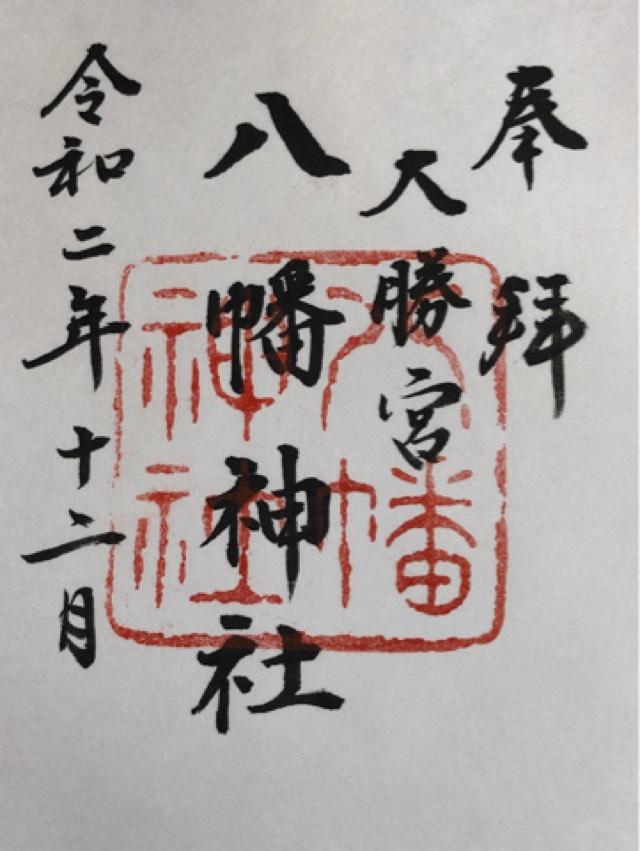 奉拝
大勝宮
八幡神社
令和二年十二月
八幡
神社